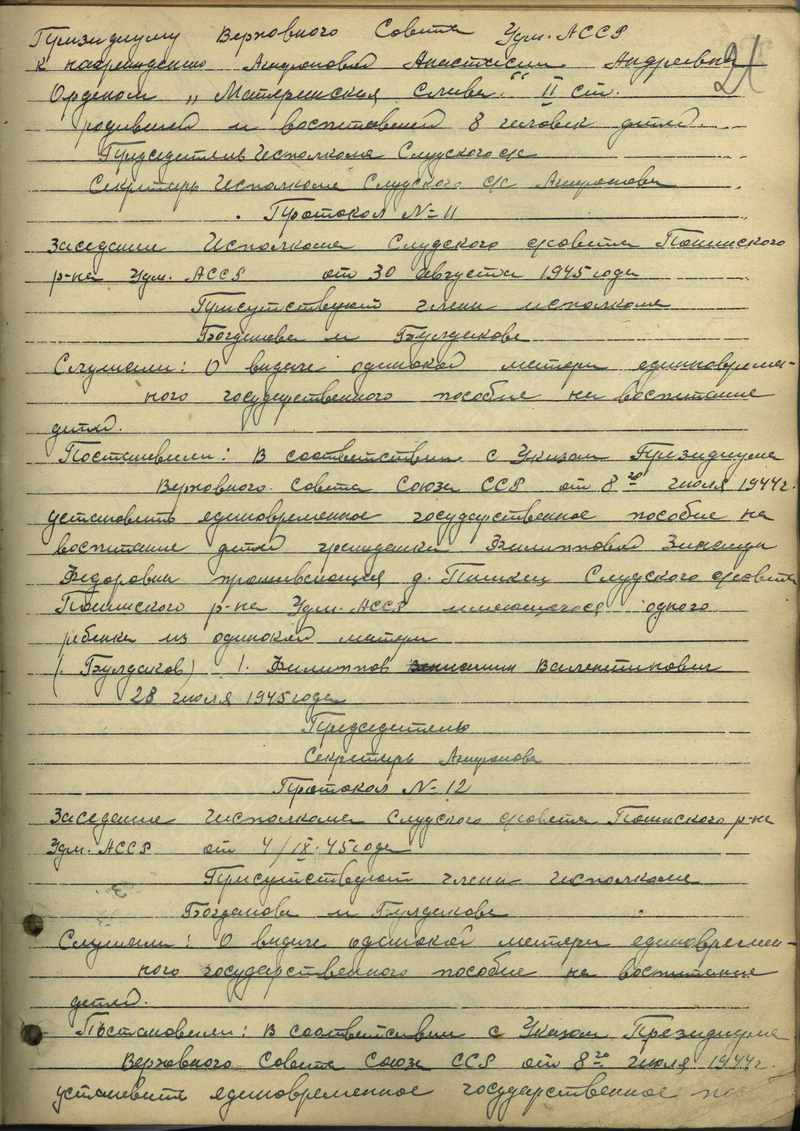 Президиуму Верховного Совета Удм. АССР
21
к награждению Агафоновой Анастасии Андреевны
Орденом „Материнская слава" II ст.
родившей и воспитавшей 8 человек детей.
Председатель Исполкома Слудского с/с
Секретарь Исполкома Слудского с/с
Протокол № 11
Заседание Исполкома Слудского с/совета Понинского
р-на Удм. АССР от 30 августа 1945 года
Присутствуют члены исполкома
Богданова и Булдакова
Слушали: О выдаче одинокой матери единовремен-
ного государственного пособие на воспитание
детей.
Постановили: В соответствии с Указом Президиума
Верховного Совета Союза ССР от 8го июля 1944 г.
установить единовременное государственное пособие на
воспитание детей гражданки Филипповой Зинаиды
Федоровны проживающая д. Слудского с/совета
Понинского р-на Удм. АССР имеющегося одного
ребенка из одинокой матери
(Булдаков) 1. Филиппов Валентинович
28 июля 1945 года
Председатель
Секретарь
Протокол № 12
Заседание Исполкома Слудского с/совета Понинского р-на
Удм. АССР от 4/IX-45 года
Присутствуют члены исполкома
Богданова и Булдакова
Слушали: О выдаче одинокой матери единовремен-
ного государственного пособие на воспитание
детей.
Постановили: В соответствии с Указом Президиума
Верховного Совета Союза ССР от 8го июля 1944 г.
установить единовременное государственное